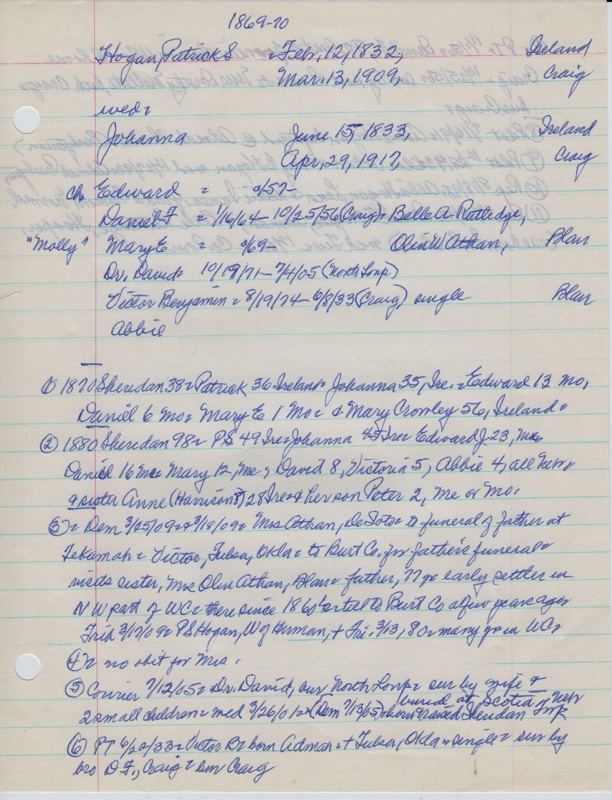 1869-70
Hogan, Patrick S = Feb. 12, 1832, Ireland
Mar. 13, 1909, Craig
wed =
Johanna June 15, 1833, Ireland
Apr. 29, 1917, Craig
ch Edward = 9/57-
Daniel F = 1/16/64 - 10/25/56 (Craig) = Belle A Rutledge,
"Molly" Mary E = 9/69- Olin W Athan, Blair
Dr. David = 10/19/71 - 7/4/05 (North Loup)
Victor Benjamin = 8/19/74 - 6/8/33 (Craig) single Blair
Abbie
① 1870 Sheridan 38 = Patrick 36 Ireland = Johanna 35, Ire. = Edward 13 Mo,
Daniel 6 Mo = Mary E 1 Mo = & Mary Crowley 56, Ireland =
② 1880 Sheridan 98 = PS 49 Ire = Johanna 45 Ire = Edward J 23, Me
Daniel 16 Me = Mary 12, Me; David 8, Victoria 5, Abbie 4, all Nebr
a sister Anne (Harrison?) 28 Ire & her son Peter 2, Me or Mo.
③ = Dem 3/25/09 = & 3/18/09 = Mrs Athan, DeSoto = to funeral of father at
Tekamah = Victor, Tulsa, Okla = to Burt Co, for father's funeral =
visits sister, Mrs Olin Athan, Blair = father, 77 = early settler in
NW part of WC = there since 1860's = to Burt Co a few years ago
Trib 3/17/09 = PS Hogan, W of Herman, + Fri. 3/13, 80 = many yrs in WC =
④ = no obit for Mrs.
⑤ Courier 7/12/05 = Dr. David, bur North Loup = sur by wife &
2 small children = wed 3/26/01 = (Dem 7/13/05) = buried at Scotia, Nebr
born & raised Sheridan Twp
⑥ PT 6/22/33 = Victor B = born Admah = + Tulsa, Okla = single = sur by
bro D.F., Craig = bur Craig